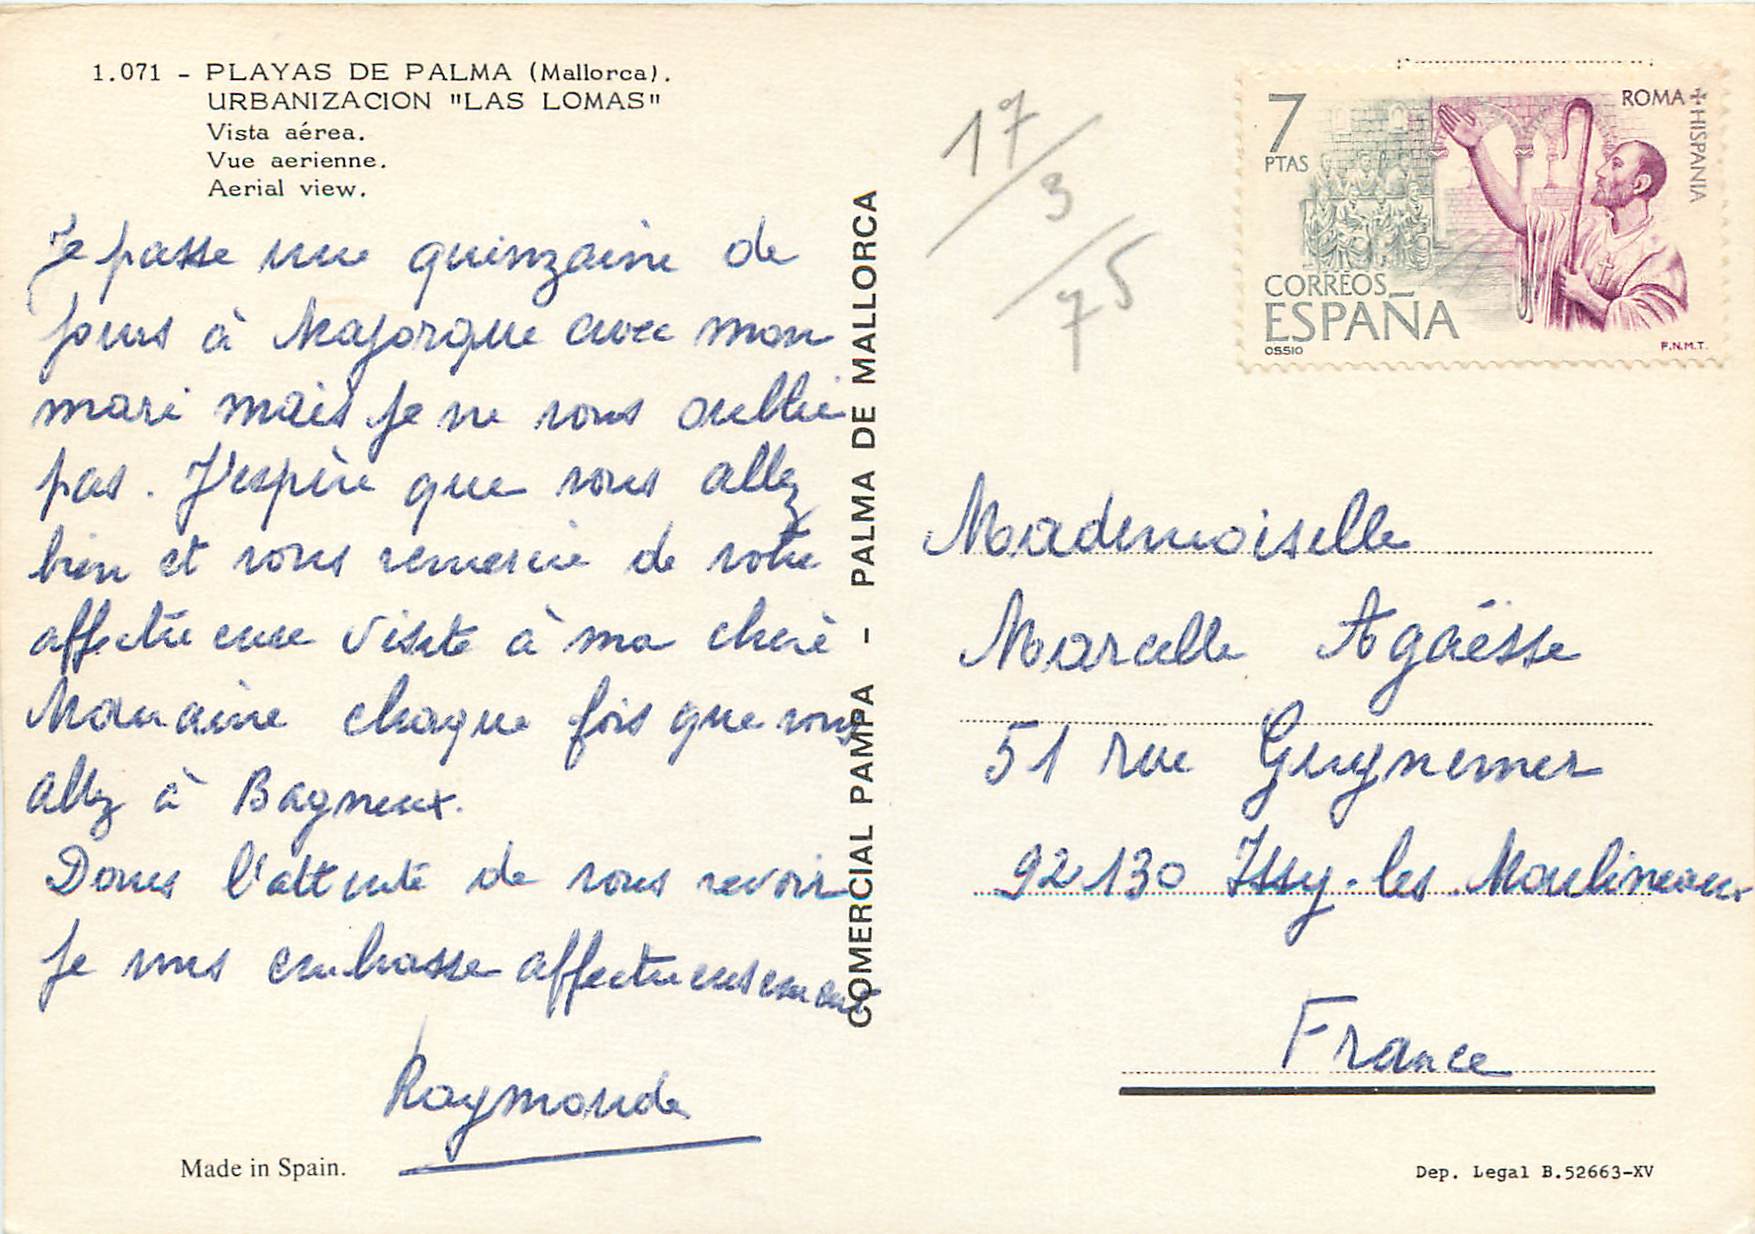 1.071 - PLAYAS DE PALMA (Mallorca).
URBANIZACION "LAS LOMAS"
Vista aérea.
Vue aerienne.
Aerial view.
Je passe une quinzaine de
jours à Majorque avec mon
mari mais je ne vous oublie
pas. J'espère que vous allez
bien et vous remercie de votre
affectueuse visite à ma chère
Marraine chaque fois que vous
allez à Bagneux.
Dans l'attente de vous revoir
je vous embrasse affectueusement
Raymonde
Made in Spain.
COMERCIAL PAMPA - PALMA DE MALLORCA
17/3/75
7
PTAS
ROMA + HISPANIA
CORREOS
ESPAÑA
OSSIO
F.N.M.T.
Mademoiselle
Marcelle Agaësse
51 rue Guynemer
92130 Issy-les-Moulineaux
France
Dep. Legal B.52663-XV